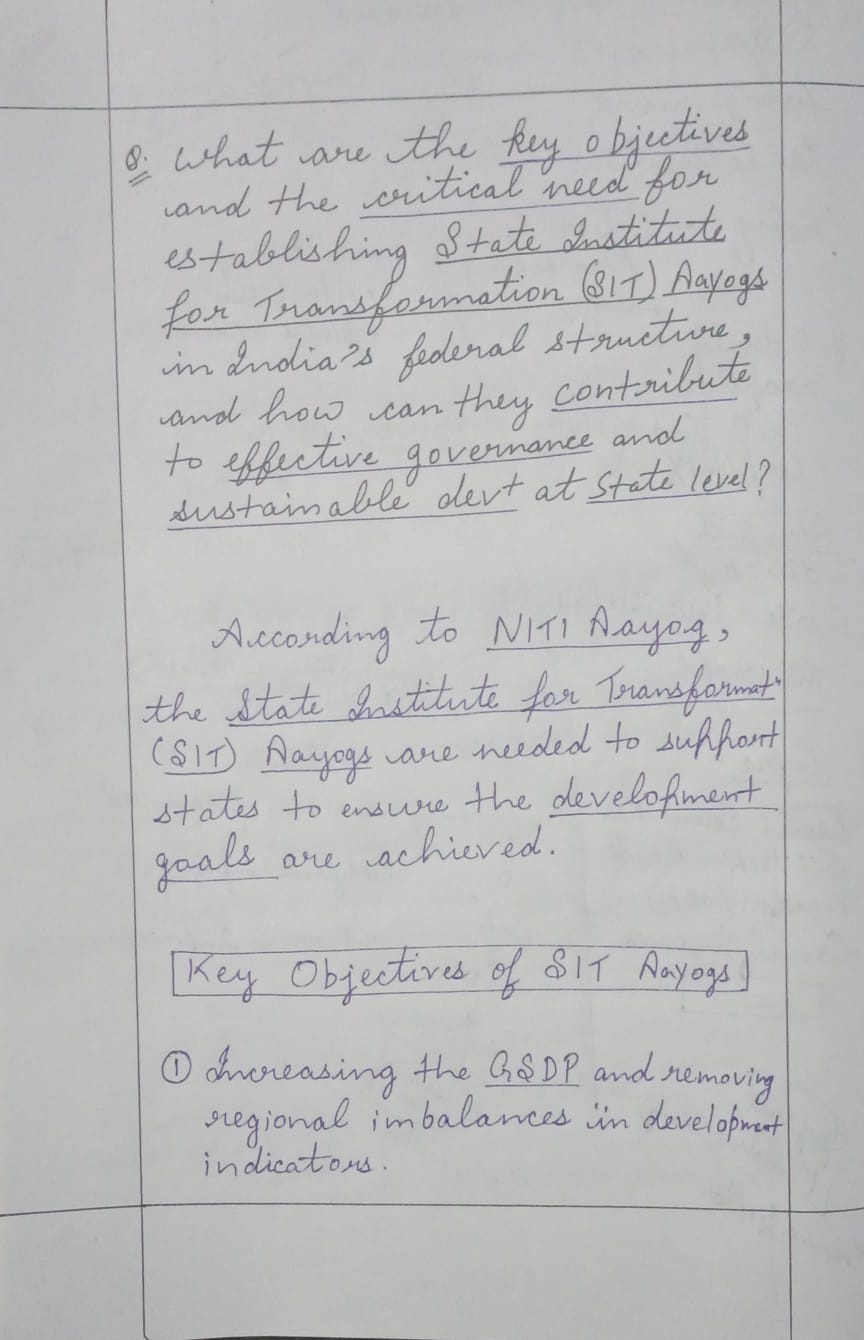 Q. What are the key objectives
and the critical need for
establishing State Institute
for Transformation (SIT) Aayogs
in India's federal structure,
and how can they contribute
to effective governance and
sustainable devt at State level?
According to NITI Aayog,
the State Institute for Transformatn
(SIT) Aayogs are needed to support
states to ensure the development
goals are achieved.
Key Objectives of SIT Aayogs
① Increasing the GSDP and removing
regional imbalances in development
indicators.